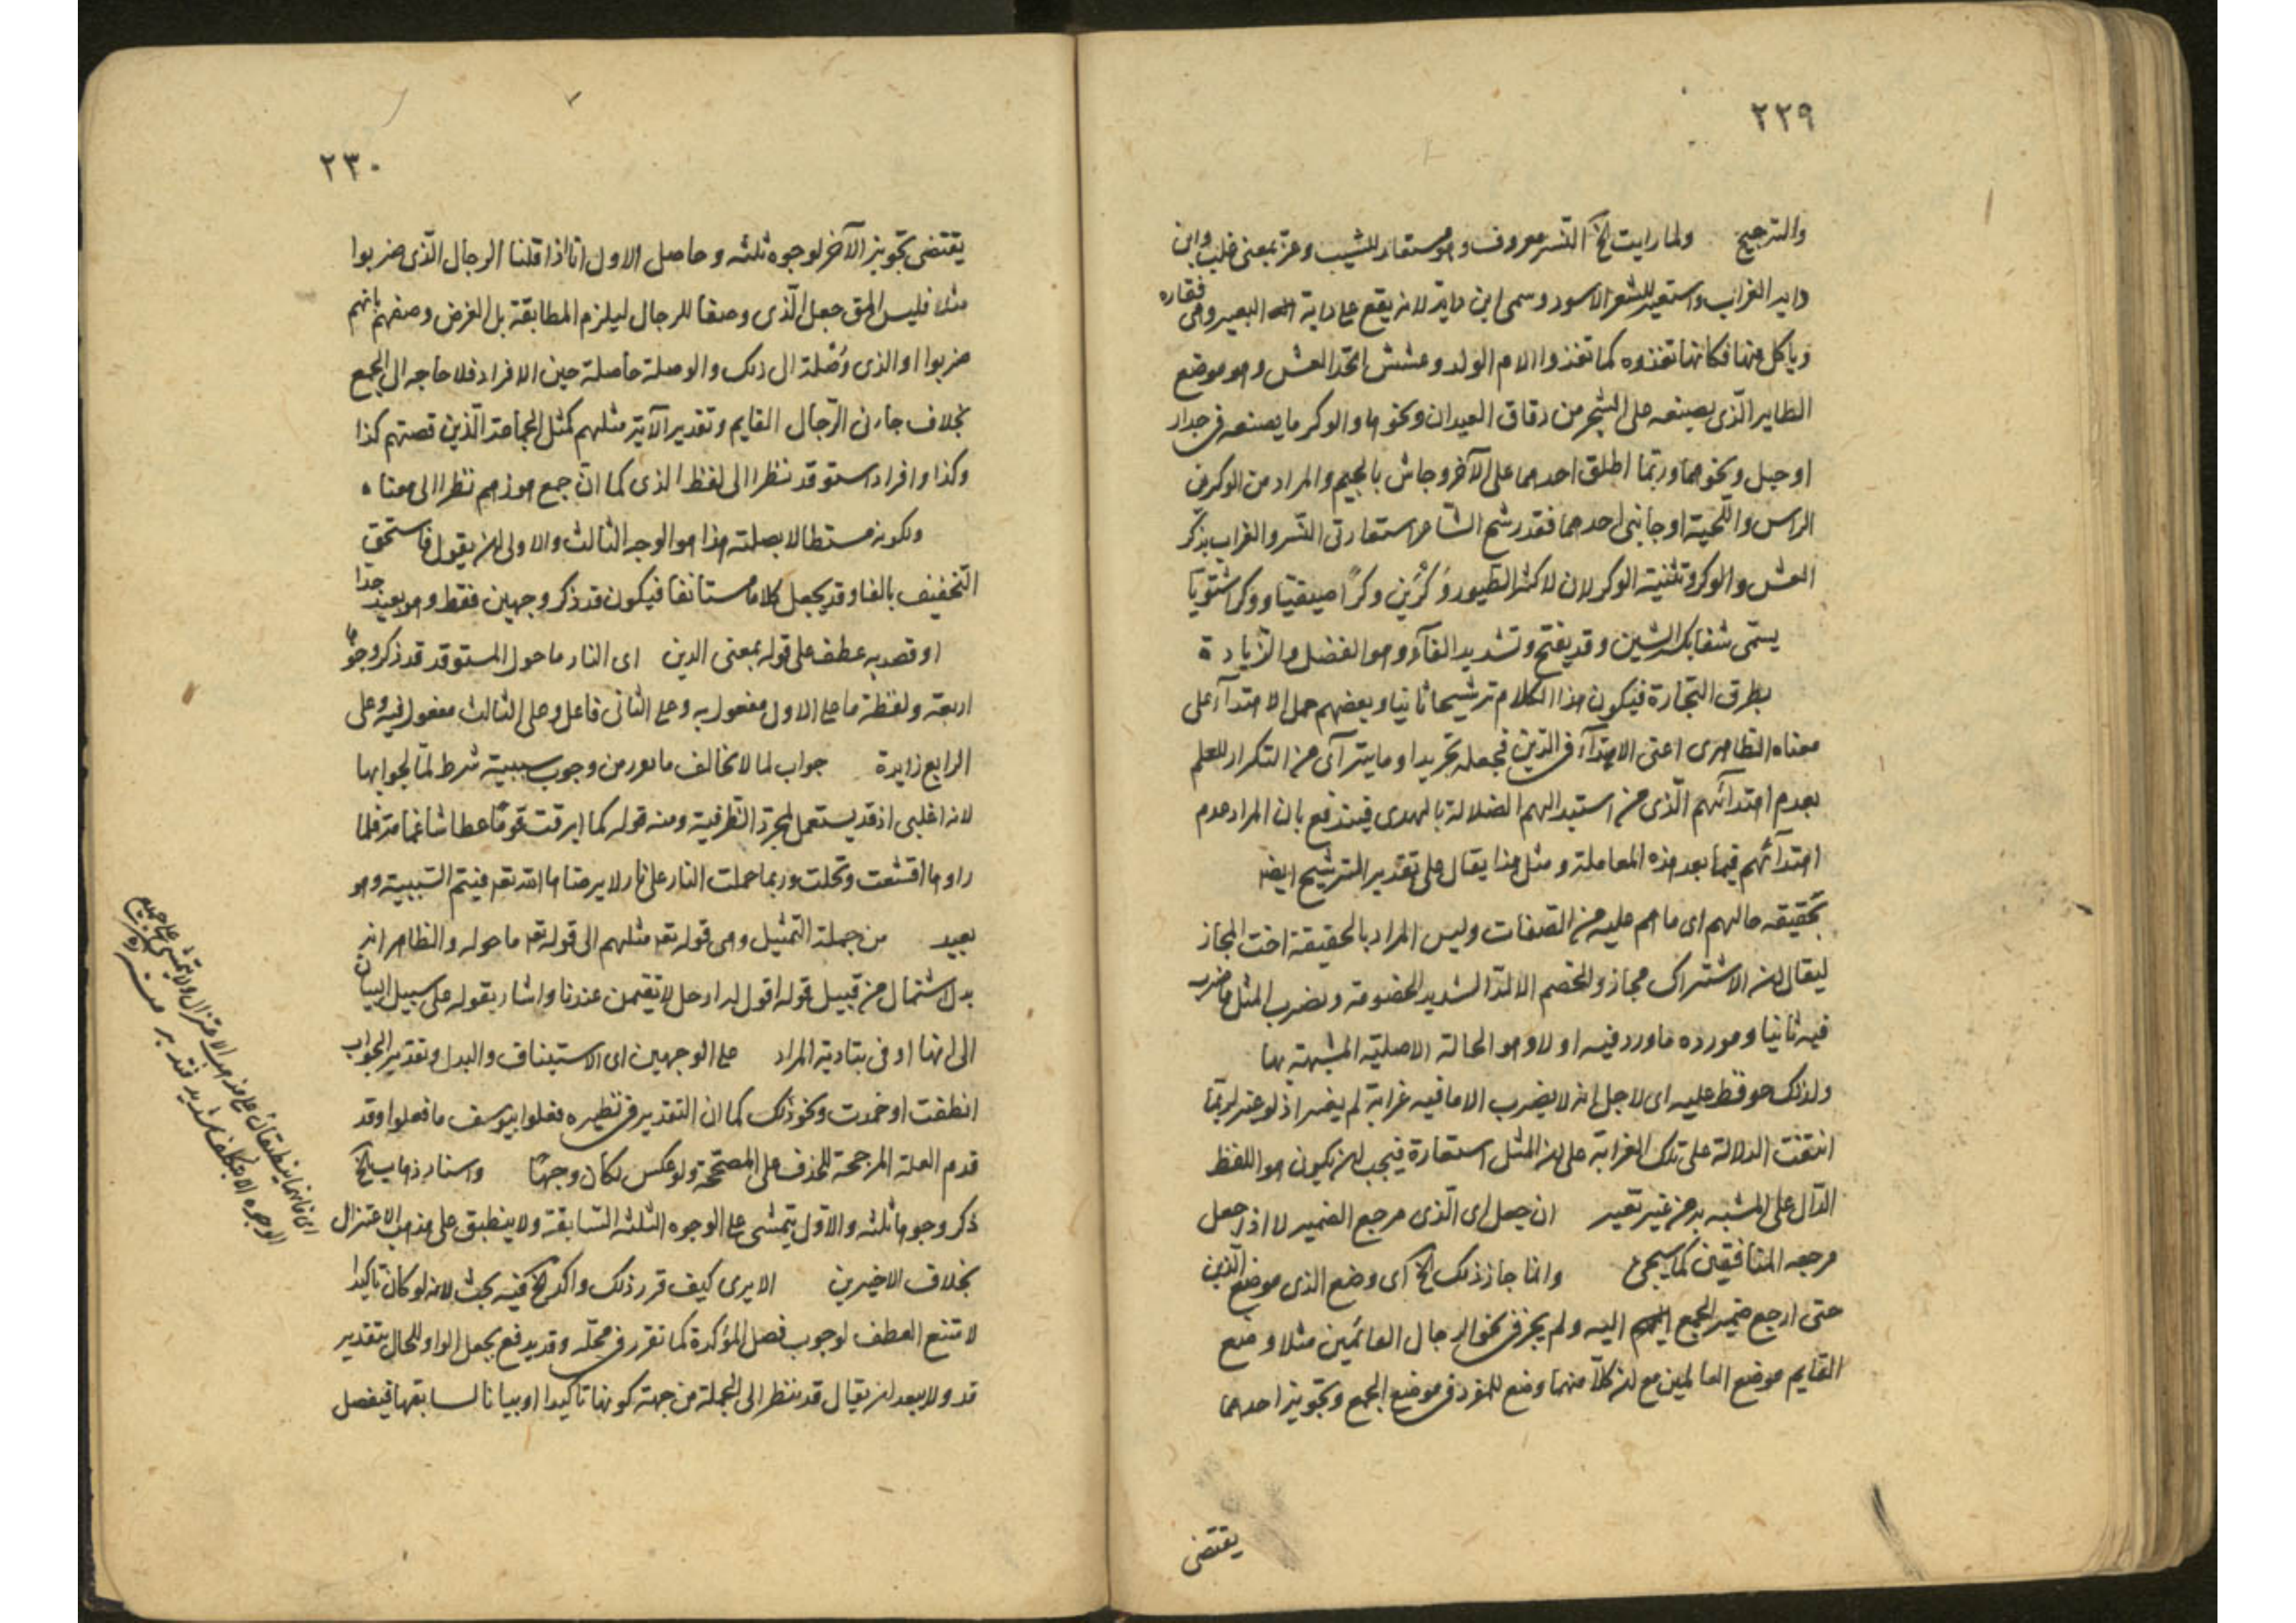 ٢٢٩
والترجيح ولما رايت الخ النسر معروف وهو مستعار للشيب وعز بمعنى غلب وابن
داية الغراب واستعير للشعر الاسود وسمى ابن داية لانه يقع على داية البعير وهى فقاره
وياكل منها فكانها تغذوه كما تغذوا الام الولد وعشش اتخذ العش وهو موضع
الطاير الّذى يصنعه على الشجر من دقاق العيدان ونحوها والوكر ما يصنعه فى جدار
او جبل ونحوهما وربّما اطلق احدهما على الآخر وجاش بالجيم والمراد من الوكرين
الراس واللّحية او جانبى احدهما فقد رشح الشاعر استعارتى النّسر والغراب بذكر
العش والوكر وتثنية الوكر لان لاكثر الطّيور وَكْرَين وكرًا صيفيّا ووكرا شتويّا
يسمّى شفا بكسر الشين وقد يفتح وتشديد الفآء وهو الفضل والزّيادة
بطرق التجارة فيكون هذا الكلام ترشيحا ثانيا وبعضهم حمل الاهتدآء على
معناه الظاهرى اعنى الاهتدآء فى الدّين فجعله تجريدا وما يترآى من التكرار للعلم
بعدم اهتدآئهم الّذى من استبدالهم الضلالة بالهدى فيندفع بان المراد عدم
اهتدآئهم فيما بعد هذه المعاملة ومثل هذا يقال على تقدير الترشيح ايضا
تحقيقه حالهم اى ما هم عليه من الصّفات وليس المراد بالحقيقة اخت المجاز
ليقال ان الاشتراك مجاز والخصم الالدّ الشديد الخصومة ويضرب المثل ما ضرب
فيه ثانيا ومورده ما ورد فيه اولا وهو الحالة الاصليّة المشبهة بها
ولذلك حوفظ عليه اى لاجل انه لا يضرب الا ما فيه غرابة لم يغير اذ لو غير لربّما
انتفت الدلالة على تلك الغرابة على ان المثل استعارة فيجب ان يكون هو اللفظ
الدّال على المشبه به من غير تغيير ان جعل اى الّذى مرجع الضمير لا اذا جعل
مرجعه المنافقين كما سيجئ وانما جاز ذلك الخ اى وضع الذى موضع الّذين
حتى ارجع ضمير الجمع اليه ولم يجز فى نحو الرجال القائمين مثلا وضع
القايم موضع القائمين مع ان كلاّ منهما وضع للمفرد فى موضع الجمع وتجويز احدهما
يقتضى
٢٣٠
يقتضى تجويز الآخر لوجوه ثلثه وحاصل الاول انا اذا قلنا الرجال الّذى ضربوا
مثلا فليس الحق جعل الّذى وصفا للرجال ليلزم المطابقة بل الغرض وصفهم بانهم
ضربوا او الذى وُصْلة الى ذلك والوصلة حاصلة حين الافراد فلا حاجه الى الجمع
بخلاف جاءنى الرّجال القايم وتقدير الآية مثلهم كمثل الجماعة الّذين قصتهم كذا
وكذا وافراد استوقد نظرا الى لفظ الذى كما انّ جمع هو ذهبهم نظرا الى معناه
ولكونه مستطالا بصلته هذا هو الوجه الثالث والاولى ان يقول فاستحق
التّخفيف بالفا وقد يجعل كلاما مستانفا فيكون قد ذكر وجهين فقط وهو بعيد جدا
او قصد به عطف على قوله بمعنى الذين اى النار ما حول المستوقد قد ذكر وجوها
اربعة ولفظة ما على الاول مفعول به وعلى الثانى فاعل وعلى الثالث مفعول فيه وعلى
الرابع زايدة جواب لما لا تخالف ما تعورمن وجوب سببية شرط لمّا لجوابها
لانه اغلبى اذ قد يستعمل لمجرّد الظّرفية ومنه قوله كما ابرقت قومًا عطاشا غمامة فلما
راوها اقشعت وتجلت وربما حملت النار على نار لا يرضاها الله تعر فيتم السّببية وهو
بعيد من جملة التّمثيل وهى قوله تعر مثلهم الى قوله تعر ما حوله والظاهر انه
بدل اشتمال من قبيل قوله اقول له ارحل لا تقيمن عندنا واشار بقوله على سبيل البيان
الى انها اوفى بتادية المراد على الوجهين اى الاستيناف والبدل وتقدير الجواب
انطفت او خمدت ونحو ذلك كما ان التقدير فى نظيره فعلوا بيوسف ما فعلوا وقد
قدم العلة المرجحة للحذف على المصحّحة ولو عكس لكان وجهًا واسناد ذهاب الخ
ذكر وجوها ثلثه والاوّل يتمشى على الوجوه الثلثه السّابقة ولا ينطبق على مذهب الاعتزال
بخلاف الاخيرين الا يرى كيف قرر ذلك واكد الخ فيه بحث لانه لو كان تاكيدا
لامتنع العطف لوجوب فصل المؤكدة كما تقرر فى محلّه وقد يدفع بجعل الواو للحال بتقدير
قد ولا يبعد ان يقال قد ينظر الى الجملة من جهة كونها تاكيدا او بيانا لسابقها فيفصل
اى فانهما ينطبقان على مذهب الاعتزال ولا يتمشى على جميع
الوجوه الا بتكلف شديد فتدبر منه